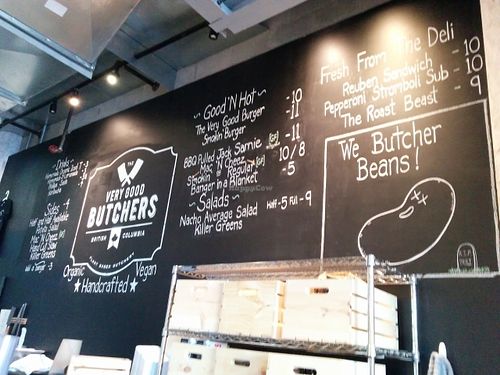 Drinks
THE
VERY GOOD
BUTCHERS
BRITISH COLUMBIA
Organic Vegan
★ Handcrafted ★
Sides
Half and Half Available
Potato Salad
Mac 'N' Cheez
Killer Greens
~ Good 'N Hot ~
The Very Good Burger -10
Smokin Burger -11
BBQ Pulled Jack Sarnie -11
Mac 'N Cheez
Smokin' or Regular - 10/8
Banger in a Blanket -5
~ Salads ~
Nacho Average Salad Half-5 Full-9
Killer Greens
Fresh From The Deli
Reuben Sandwich - 10
Pepperoni Stromboli Sub - 10
The Roast Beast - 9
We Butcher
Beans!
R.I.P.
HappyCow